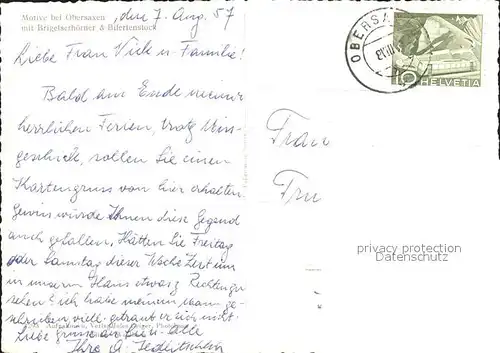 Motive bei Obersaxen
mit Brigelserhörner & Bifertenstock
den 7. Aug. 57
Liebe Frau Vieli u. Familie!
Bald am Ende meiner
herrlichen Ferien, trotz Miss-
geschick, sollen Sie einen
Kartengruss von hier erhalten.
Gewiss würde Ihnen diese Gegend
auch gefallen. Hätten Sie Freitag
oder Samstag dieser Woche Zeit um
in unserm Haus etwas Rechtzu-
sehen? ich habe meinem Mann ge-
schrieben viell. getraut er sich nicht.
Liebe Grüsse an Sie alle
Ihre
OBERSA
10 HELVETIA
Frau
Fru
privacy protection
Datenschutz